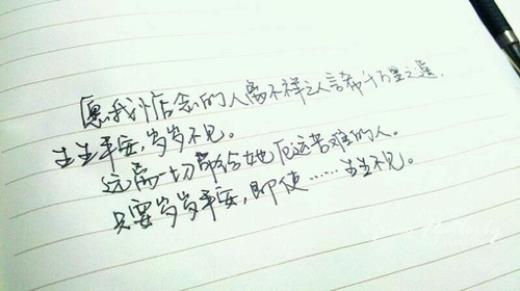 愿我惦念的人离不祥之人言希千万里之遥，
生生平安，岁岁不见。
远离一切带给她厄运苦难的人。
只要岁岁平安，即使……生生不见。